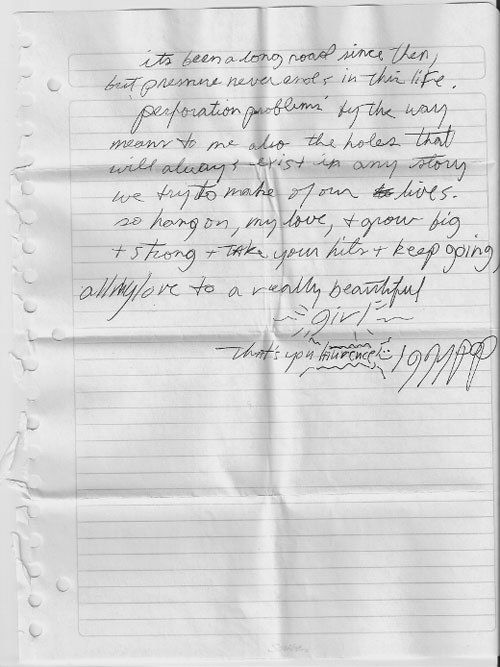 its been a long road since then,
but pressure never ends in this life.
'perforation problems' by the way
means to me also the holes that
will always exist in any story
we try to make of our lives.
so hang on, my love, + grow big
+ strong + take your hits + keep going,
all my love to a really beautiful
girl
that's you laurence
iggy pop